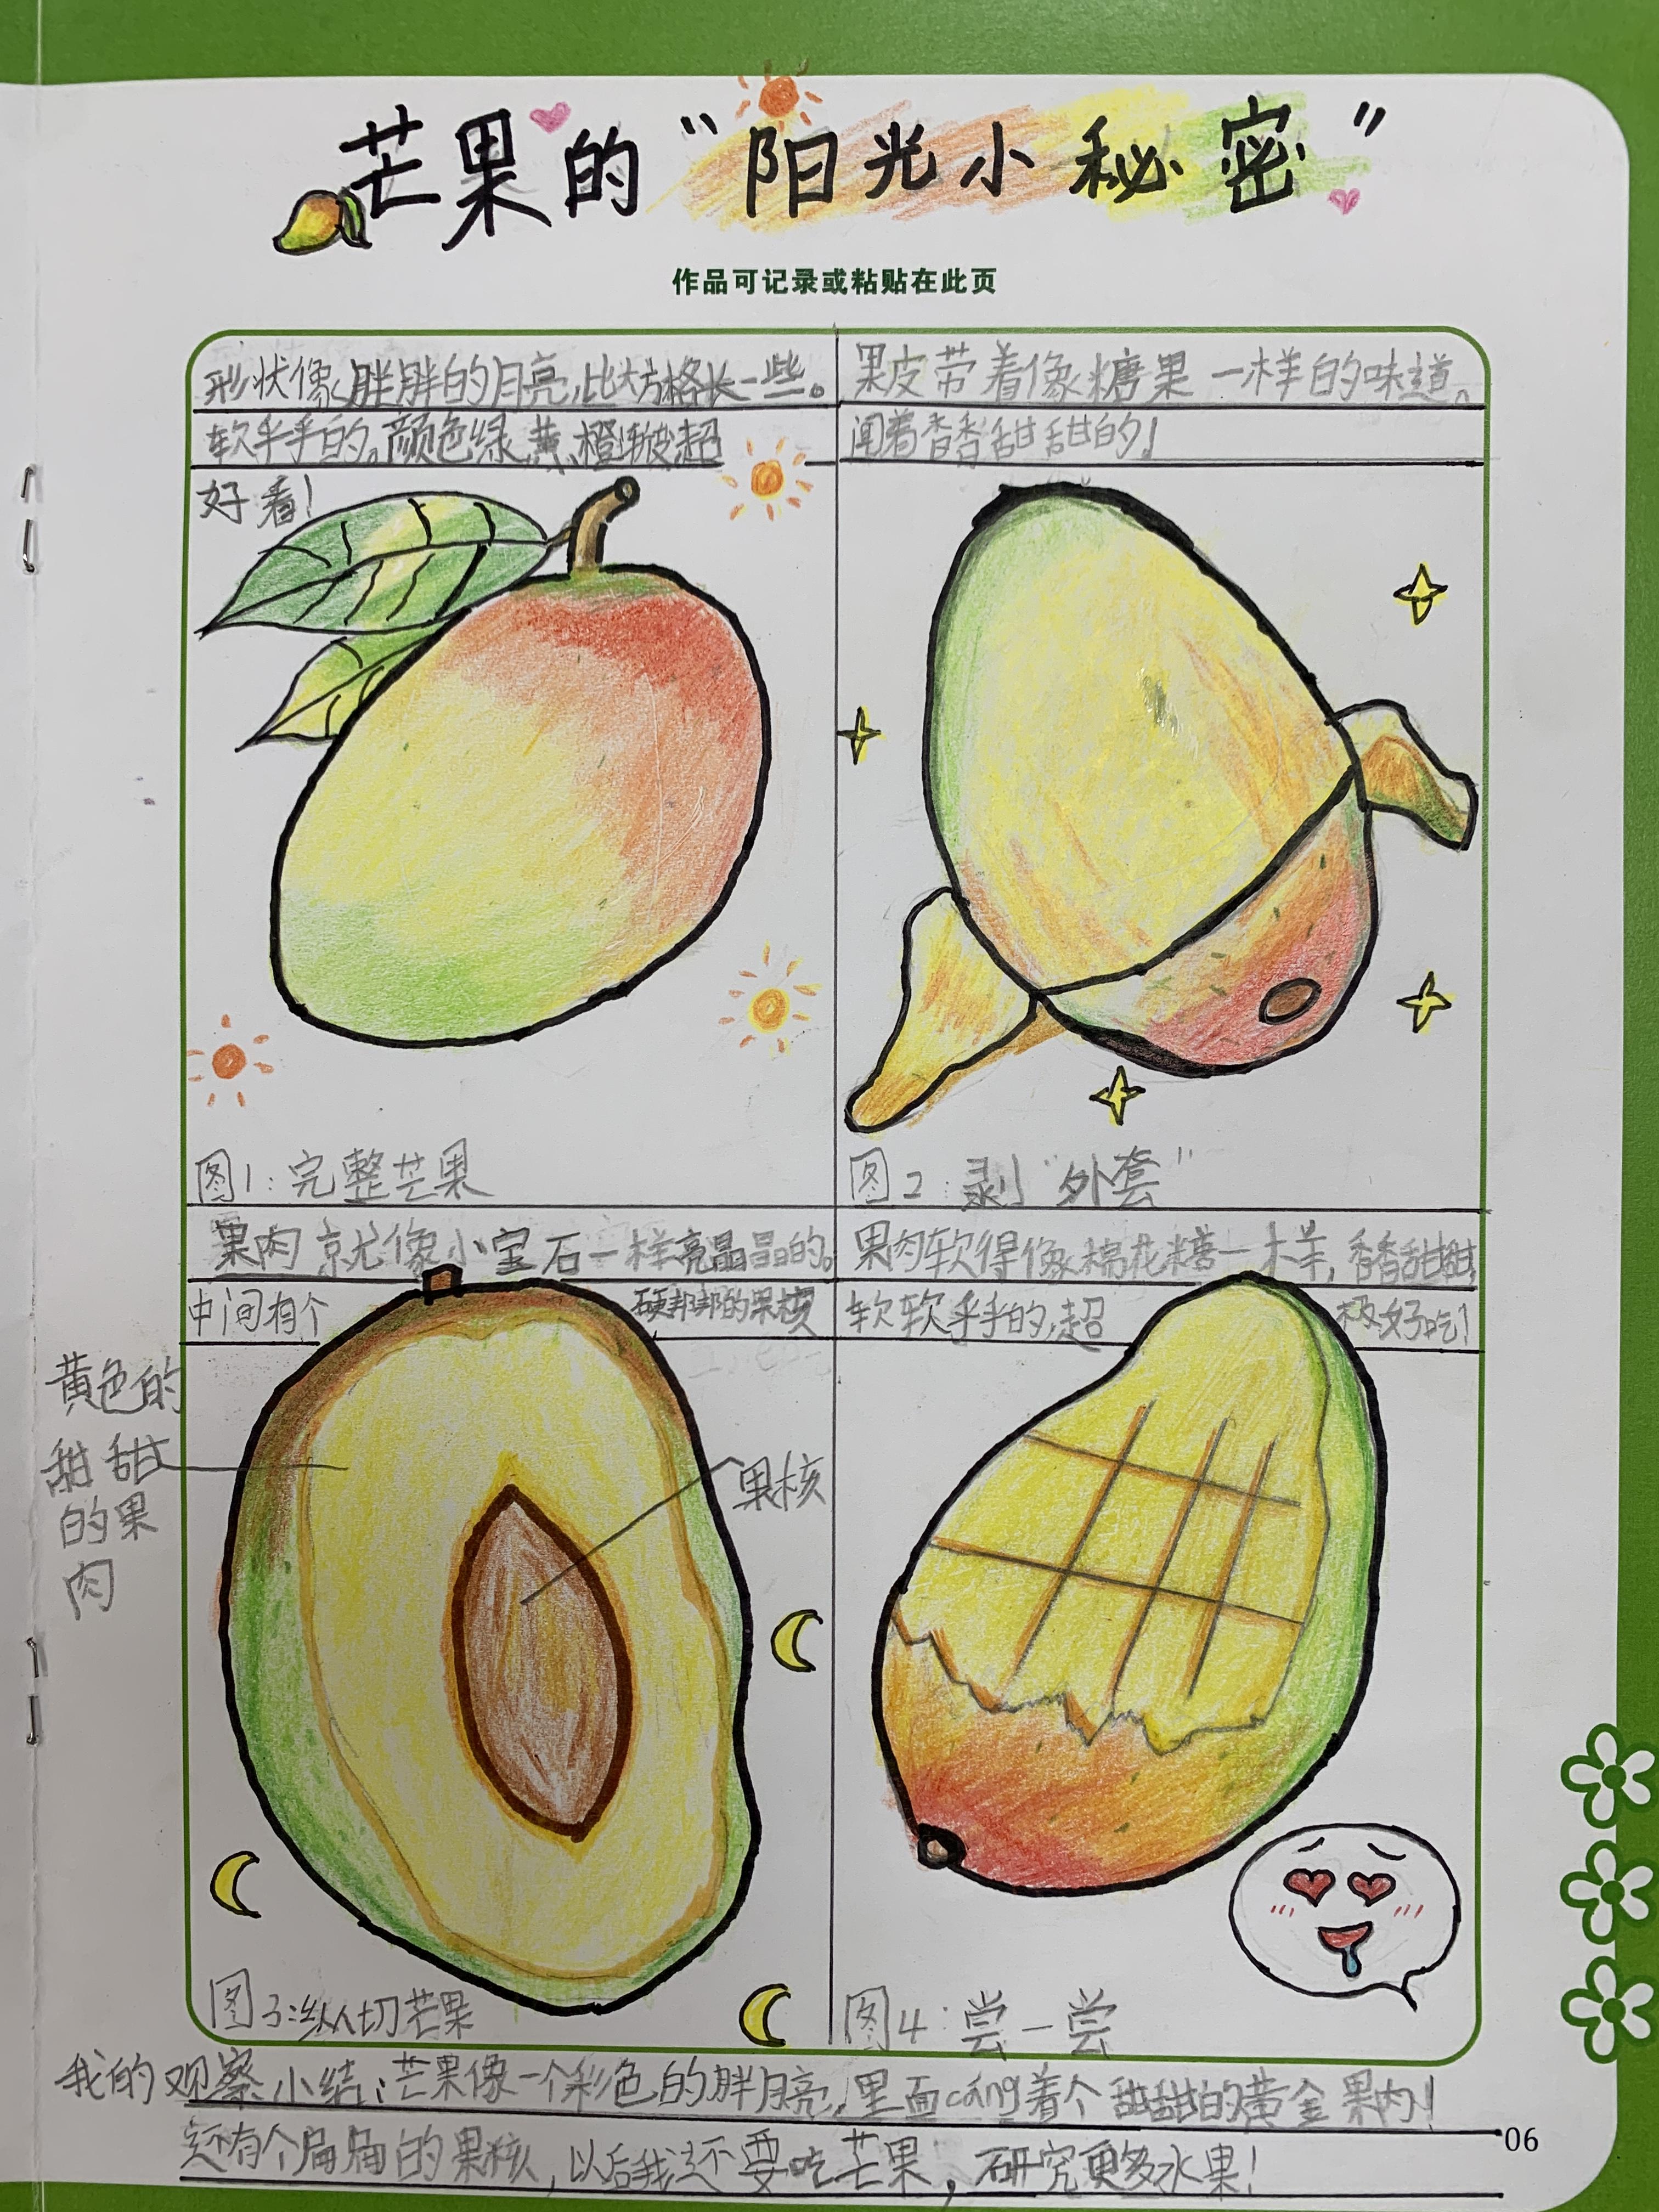 芒果的“阳光小秘密”
作品可记录或粘贴在此页
形状像胖胖的月亮,比大方格长一些。
软乎乎的。颜色绿、黄、橙渐变超
好看!
图1:完整芒果
果皮带着像糖果一样的味道。
闻着香香甜甜的!
图2:剥“外套”
果肉就像小宝石一样亮晶晶的。
中间有个硬邦邦的果核
黄色的
甜甜
的果
肉
果核
图3:纵切芒果
果肉软得像棉花糖一样,香香甜甜,
软软乎乎的,超极好吃!
图4:尝一尝
我的观察小结:芒果像一个彩色的胖月亮,里面cáng着个甜甜的黄金果肉!
还有个扁扁的果核,以后我还要吃芒果,研究更多水果!
06